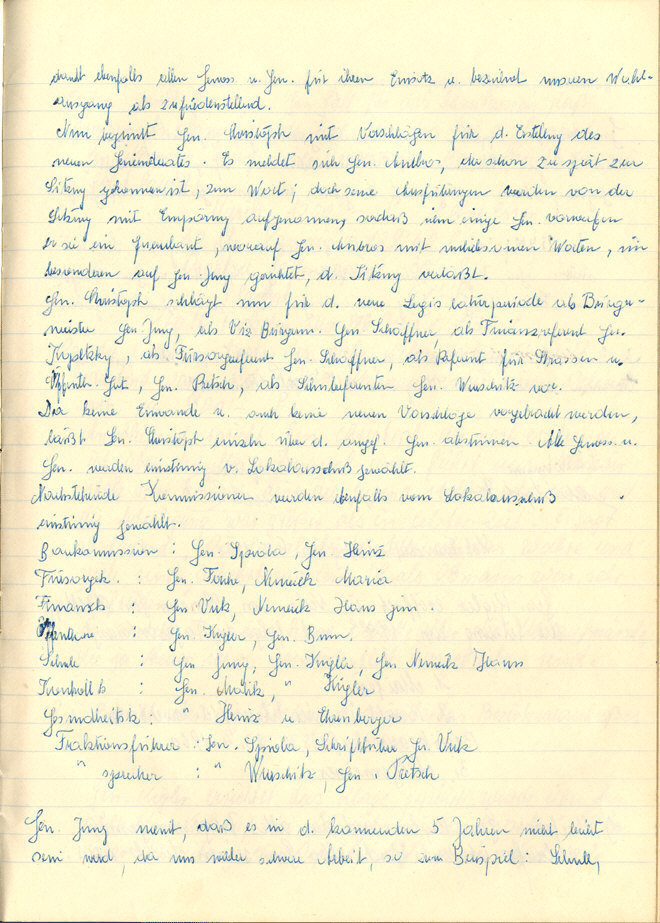 dankt ebenfalls allen Genoss. u. Gen. für ihren Einsatz u. bezeichnet unseren Wahl-
ausgang als zufriedenstellend.
Nun beginnt Gen. Christoph mit Vorschlägen für d. Erstellung des
neuen Gemeinderates. Es meldet sich Gen. Ambros, der schon zu spät zur
Sitzung gekommen ist, zum Wort; doch seine Ausführungen werden von der
Sitzung mit Empörung aufgenommen, sodaß ihm einige Gen. vorwerfen
er sei ein, worauf Gen. Ambros mit Worten, im
besonderen auf Gen. Jung gerichtet, d. Sitzung verläßt.
Gen. Christoph schlägt nun für d. neue Legislaturperiode als Bürger-
meister Gen. Jung, als Viz Bürgerm. Gen. Schaffner, als Finanzreferent Gen.
als Fürsorgereferent Gen. Schaffner, als Referent für Strassen u.
Öffentl. Gut, Gen. Pietsch, als Schulreferenten Gen. Wuschitz vor.
Da keine Einwände u. auch keine neuen Vorschläge vorgebracht werden,
läßt Gen. Christoph einzeln über d. angef. Gen. abstimmen. Alle Genoss. u.
Gen. werden einstimmig v. Lokalausschuß gewählt.
Nachstehende Kommissionen werden ebenfalls vom Lokalausschuß
einstimmig gewählt.
Baukommission : Gen. Spiola, Gen. Heinz
Fürsorgek. : Gen. Nemecek Maria
Finanzk : Gen Vuk, Nemecek Hans jun.
: Gen. Kugler, Gen.
Schule : Gen Jung, Gen. Kugler, Gen Nemecek Hans
Kontrollk : Gen. Malik, " Kugler
Gesundheitsk : " Heinz u
Fraktionsführer : Gen. Spiola, Schriftführer Gen. Vuk
" sprecher : " Wuschitz, Gen. Pietsch
Gen. Jung meint, daß es in d. kommenden 5 Jahren nicht leicht
sein wird, da uns wieder schwere Arbeit, so zum Beispiel: Schule,